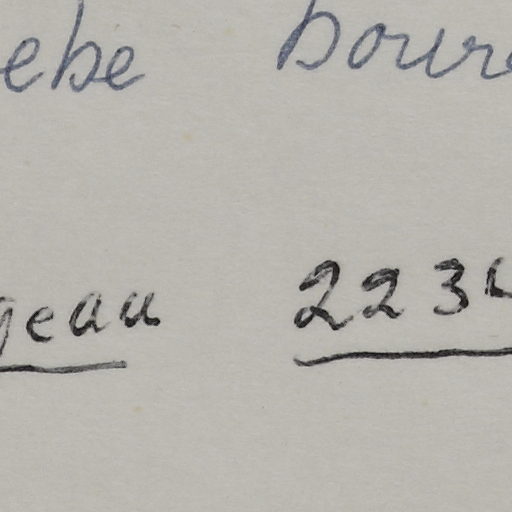 ebe bour
geau 223